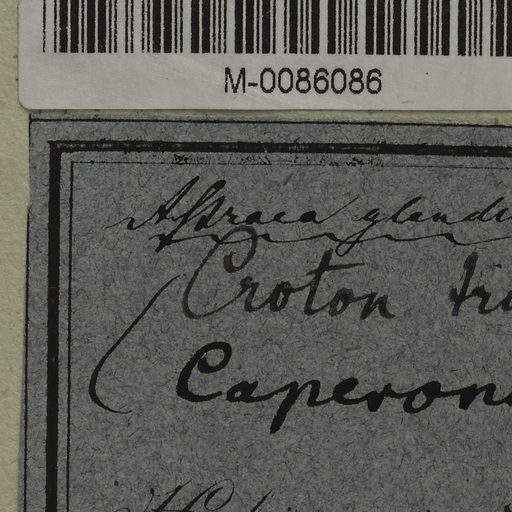 M-0086086
Astraea glandu
Croton tri
Caperoni